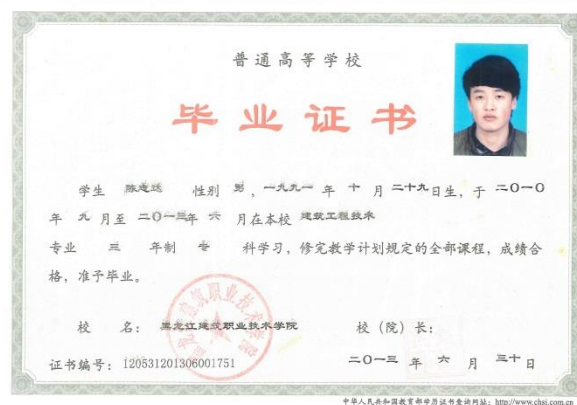 普通高等学校
毕业证书
学生 陈建达 性别 男，一九九一年 十 月 二十九日生，于 二〇一〇
年 九 月至 二〇一三年 六 月在本校 建筑工程技术
专业 三 年制 专 科学习，修完教学计划规定的全部课程，成绩合
格，准予毕业。
校 名： 黑龙江建筑职业技术学院 校（院）长：
证书编号：120531201306001751 二〇一三 年 六 月 三十日
中华人民共和国教育部学历证书查询网址：http://www.chsi.com.cn